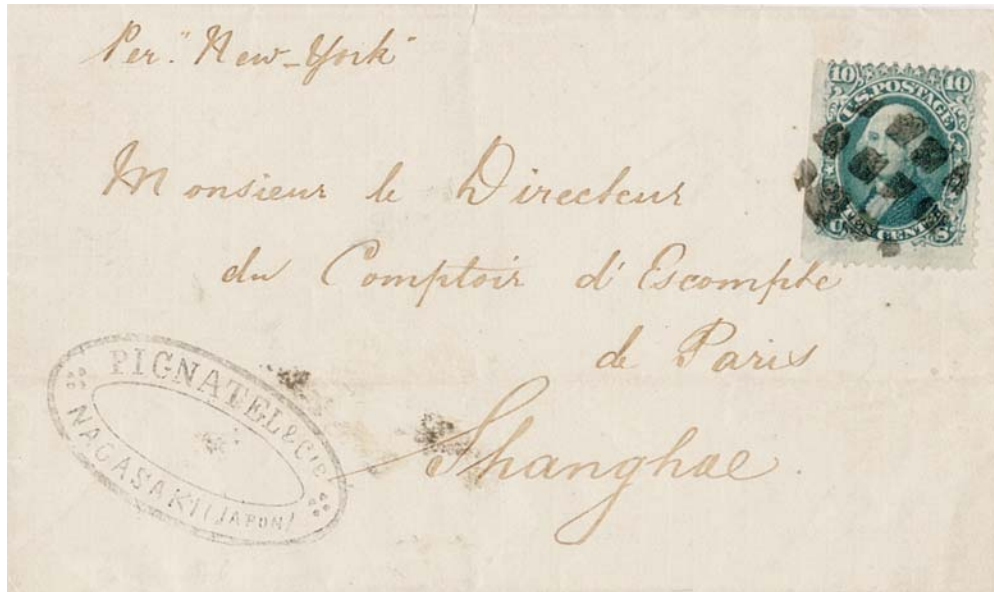 Per. "New-York"
10 10
U.S. POSTAGE
TEN CENTS
U S
Monsieur le Directeur
du Comptoir d'Escompte
de Paris
Shanghae
PIGNATEL & CIE
NAGASAKI (JAPON)